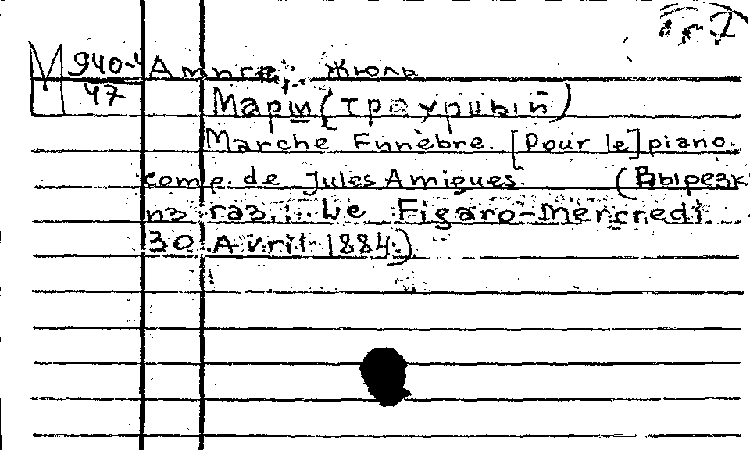 М 940-4 Амигс, Жюль
47
Марш (траурный)
Marche Funèbre. [Pour le] piano.
comp. de Jules Amigues (Вырезк
из газ.: Le Figaro-Mercredi
30 Avril 1884.)